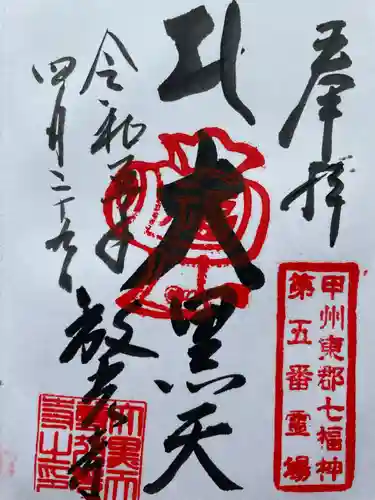 奉拝
大黒天
令和五年
四月二十九日
放光寺
甲州東郡七福神
第五番霊場